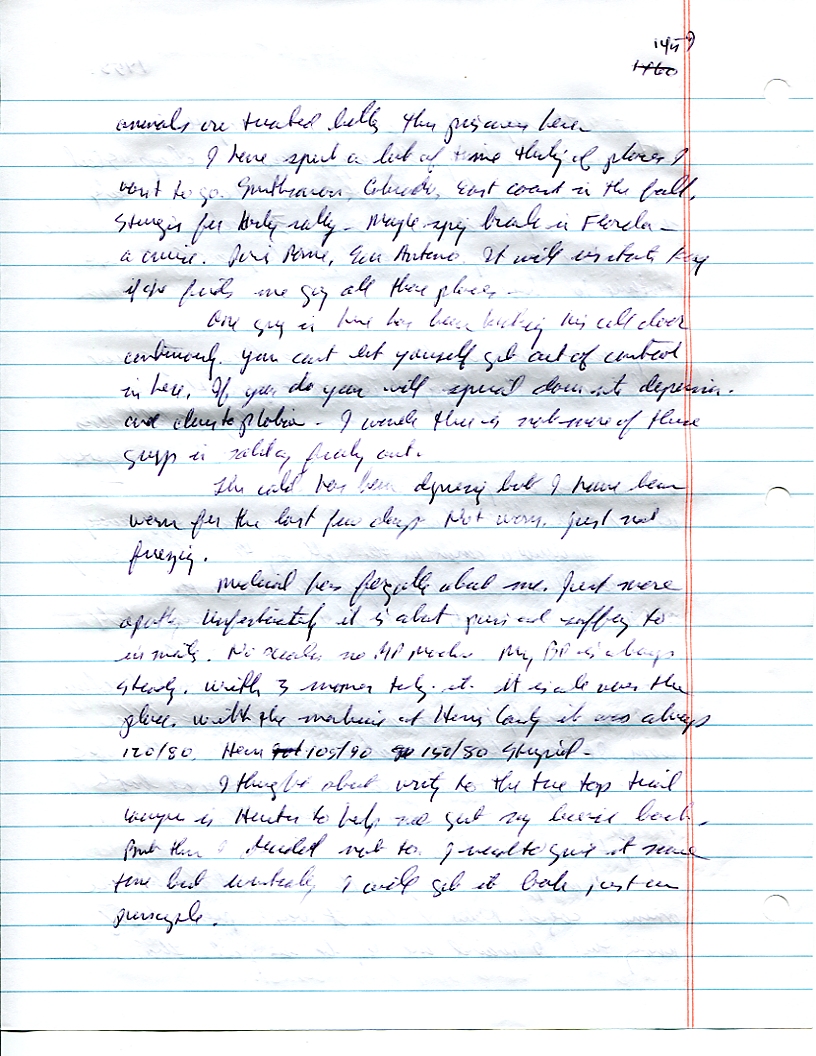 animals are treated better than prisoners here
I have spent a lot of time thinking of places I
want to go. Smithsonian, Colorado, East coast in the fall.
Sturgis for Harley rally - Maybe spring break in Florida -
a cruise. Paris Rome, San Antonio. It will
if she finds me going all these places -
One guy in here has been kicking his cell door
continuously. You cant let yourself get out of control
in here. If you do you will spiral down into depression
and claustrophobia - I wonder there is not more of these
guys in solitary freaking out.
The cold has been depressing but I have been
warm for the last few days Not warm. just not
freezing.
Medical has forgotten about me. Just more
apathy Unfortunately it is about staffing to
inmates. No no BP My BP is always
steady. With 3 taking it. it is all over the
place. With the machine at Harris County it was always
120/80. Here 105/90 150/80 Stupid -
I thought about writing to the top trial
lawyer in Houston to help me get my license back.
But then I decided not to. I need to give it some
time but eventually I will get it back just on
principle.